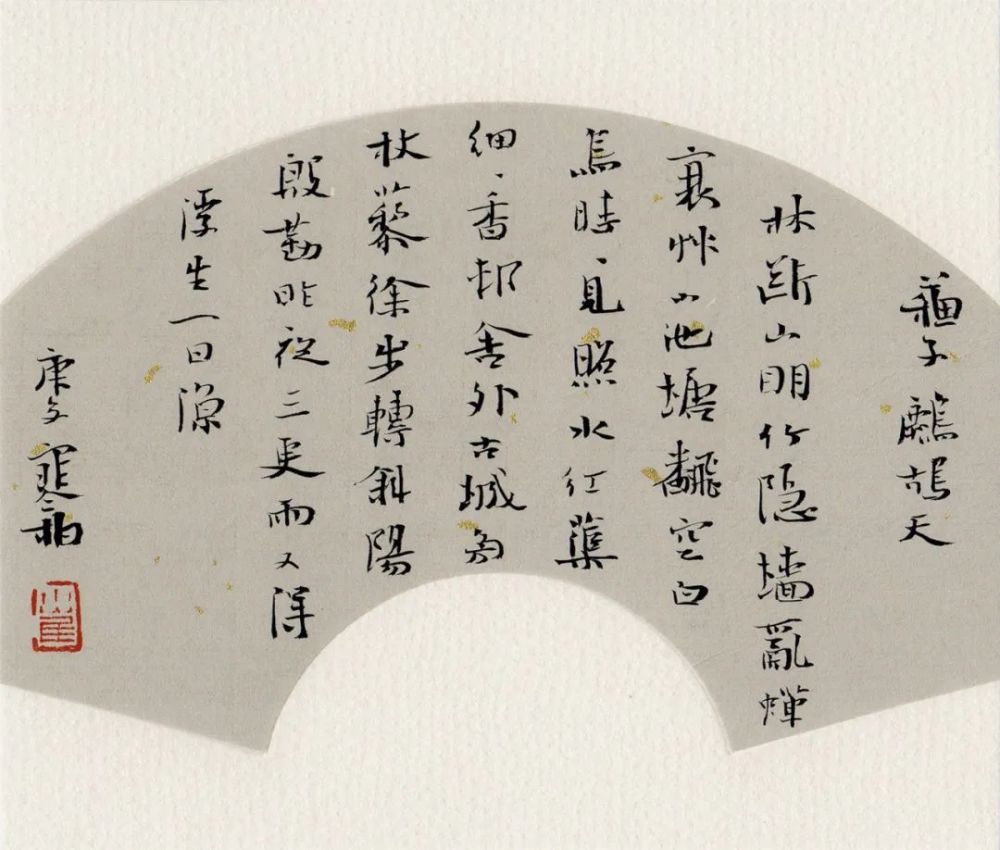 蘇子鷓鴣天
林斷山明竹隐墻亂蟬
衰艸小池塘翻空白
鳥時、見照水紅蕖
細、香邨舍外古城旁
杖藜徐步轉斜陽
殷勤昨夜三更雨又得
浮生一日涼